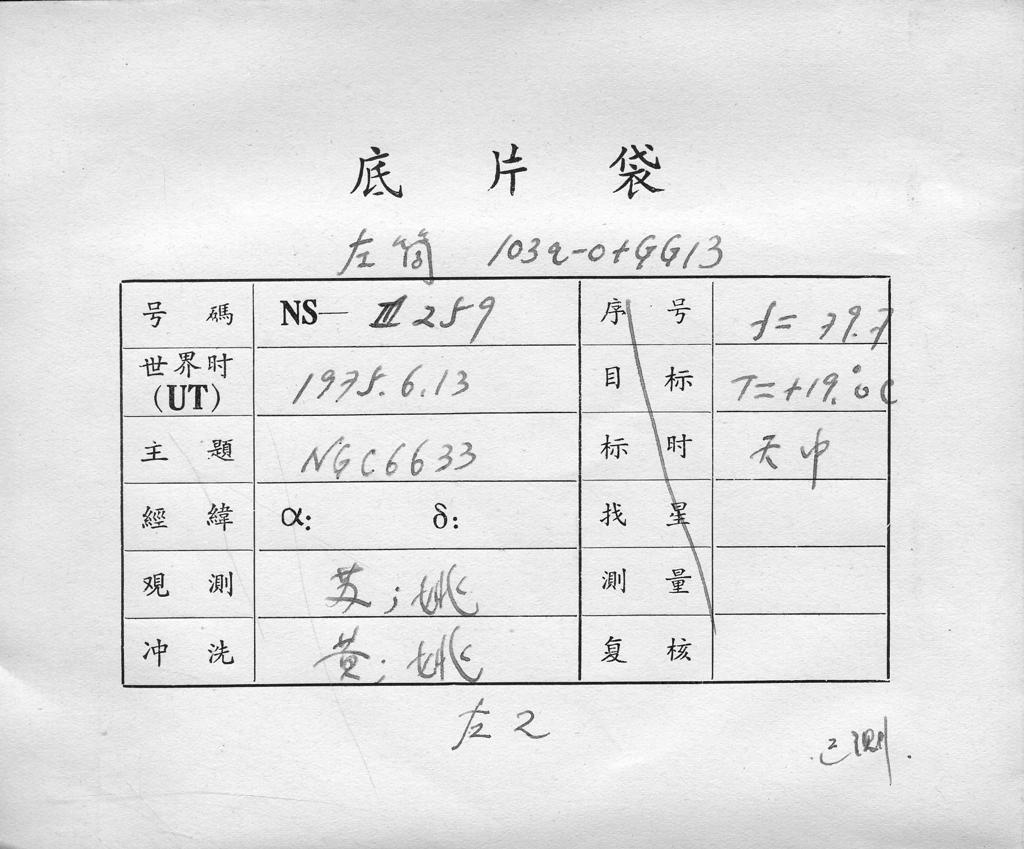 底片袋
左筒 103a-0+GG13
号碼 NS— III 259 序号 f= 79.7
世界时(UT) 1975.6.13 目标 T=+19.°0C
主題 NGC6633 标时 天中
經緯 α: δ: 找星
观測 苏;姚 測量
冲洗 黄;姚 复核
左2
已测.